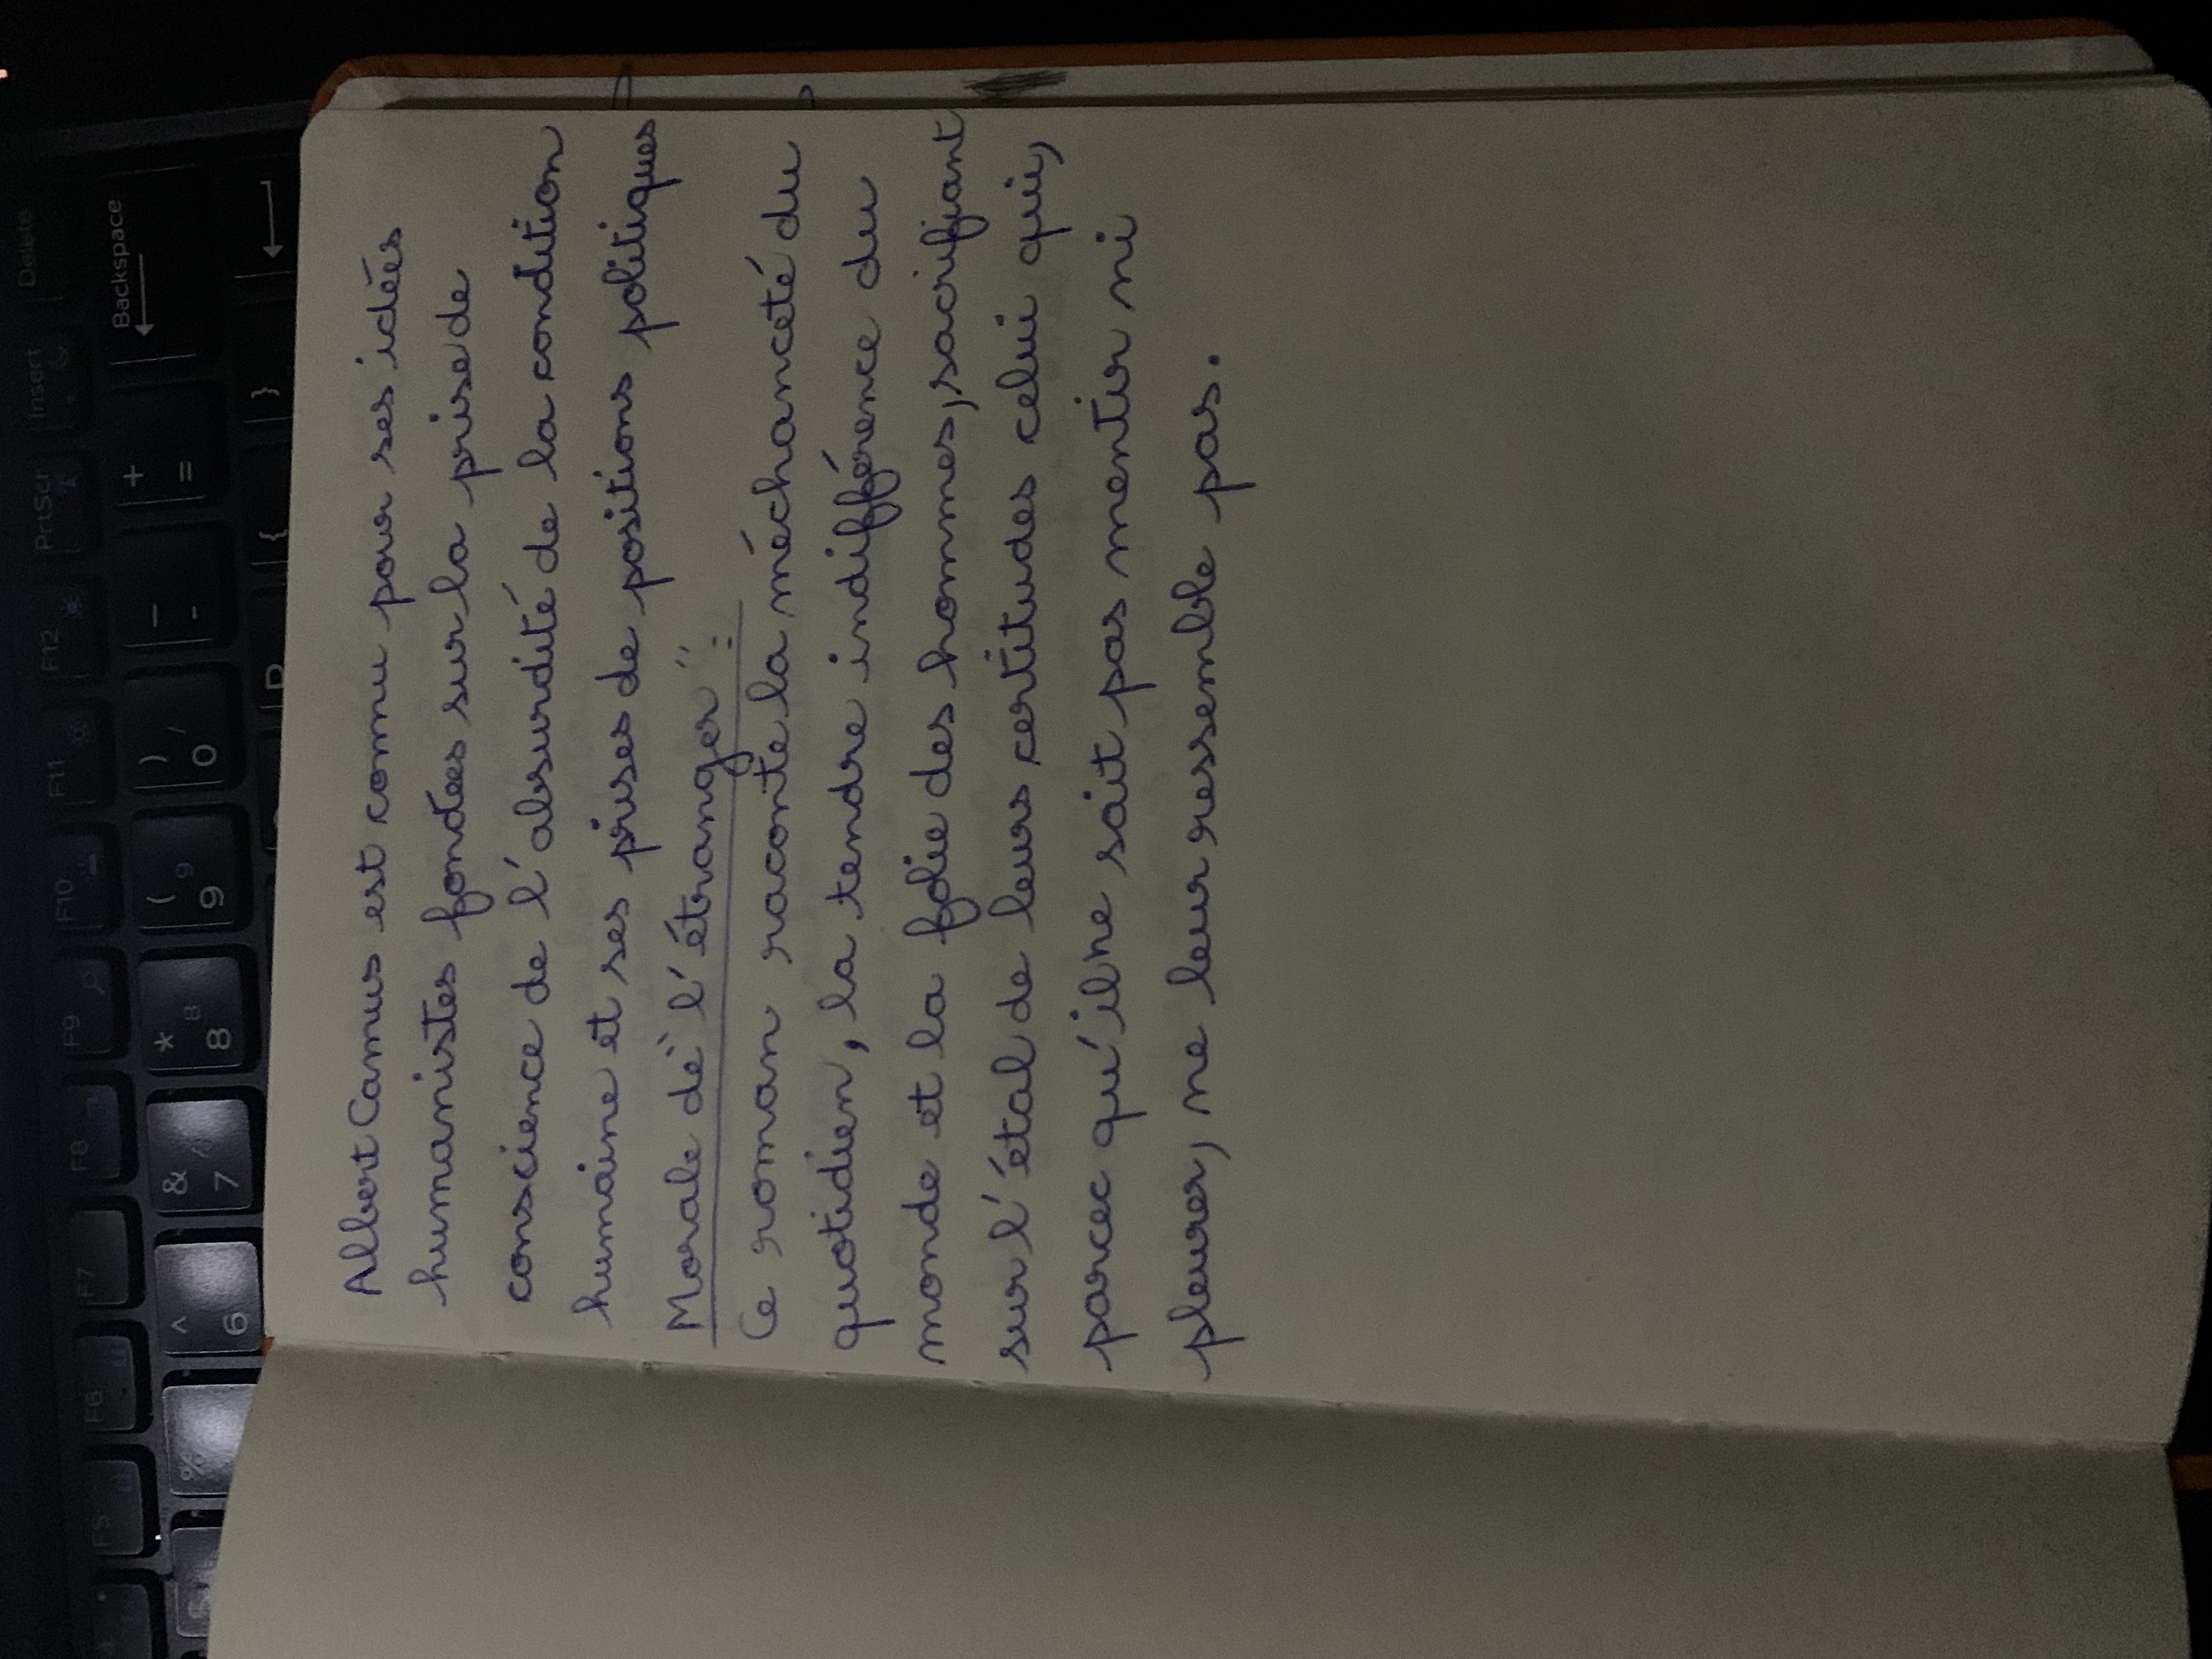 F5 F6 F7 F8 F9 F10 F11 F12 PrtScr Insert Delete
% ^ 6 & 7 * 8 8 ( 9 9 ) 0 / — - + = Backspace
P { }
Albert Camus est connu pour ses idées
humanistes fondées sur la prise de
conscience de l'absurdité de la condition
humaine et ses prises de positions politiques
Morale de "l'étranger":
Ce roman raconte la méchanceté du
quotidien, la tendre indifférence du
monde et la folie des hommes, sacrifiant
sur l'étal de leurs certitudes celui qui,
parcec qu'il ne sait pas mentir ni
pleurer, ne leur ressemble pas.